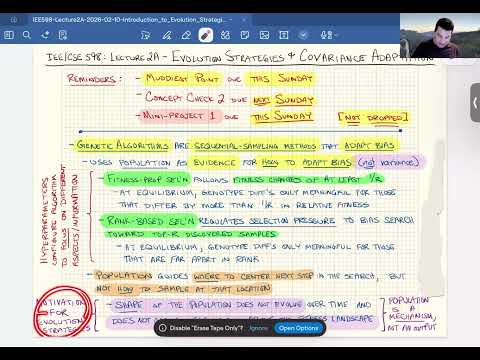 IEE598-Lecture2A-2026-02-10-Introduction_to_Evolution_Strategi...
IEE/CSE 598: LECTURE 2A - EVOLUTION STRATEGIES & COVARIANCE ADAPTATION
REMINDERS: - MUDDIEST POINT DUE THIS SUNDAY
- CONCEPT CHECK 2 DUE NEXT SUNDAY
- MINI-PROJECT 1 DUE THIS SUNDAY [NOT DROPPED]
- GENETIC ALGORITHMS ARE SEQUENTIAL-SAMPLING METHODS THAT ADAPT BIAS
- USES POPULATION AS EVIDENCE FOR HOW TO ADAPT BIAS (NOT VARIANCE)
HYPERPARAMETERS
CONFIGURE ALGORITHM
TO FOCUS ON DIFFERENT
ASPECTS/INFORMATION
- FITNESS-PROP SEL'N FOLLOWS FITNESS CHANGES OF AT LEAST 1/R
- AT EQUILIBRIUM, GENOTYPE DIFF'S ONLY MEANINGFUL FOR THOSE
THAT DIFFER BY MORE THAN 1/R IN RELATIVE FITNESS
- RANK-BASED SEL'N REGULATES SELECTION PRESSURE TO BIAS SEARCH
TOWARD TOP-R DISCOVERED SAMPLES
- AT EQUILIBRIUM, GENOTYPE DIFF'S ONLY MEANINGFUL FOR THOSE
THAT ARE FAR APART IN RANK
- POPULATION GUIDES WHERE TO CENTER NEXT STEP IN THE SEARCH, BUT
NOT HOW TO SAMPLE AT THAT LOCATION
MOTIVATION
FOR
EVOLUTION
STRATEGIES
- SHAPE OF THE POPULATION DOES NOT EVOLVE OVER TIME AND
DOES NOT
FITNESS LANDSCAPE
POPULATION IS A
MECHANISM,
NOT AN OUTPUT
Disable "Erase Tape Only"?
Ignore
Open Options